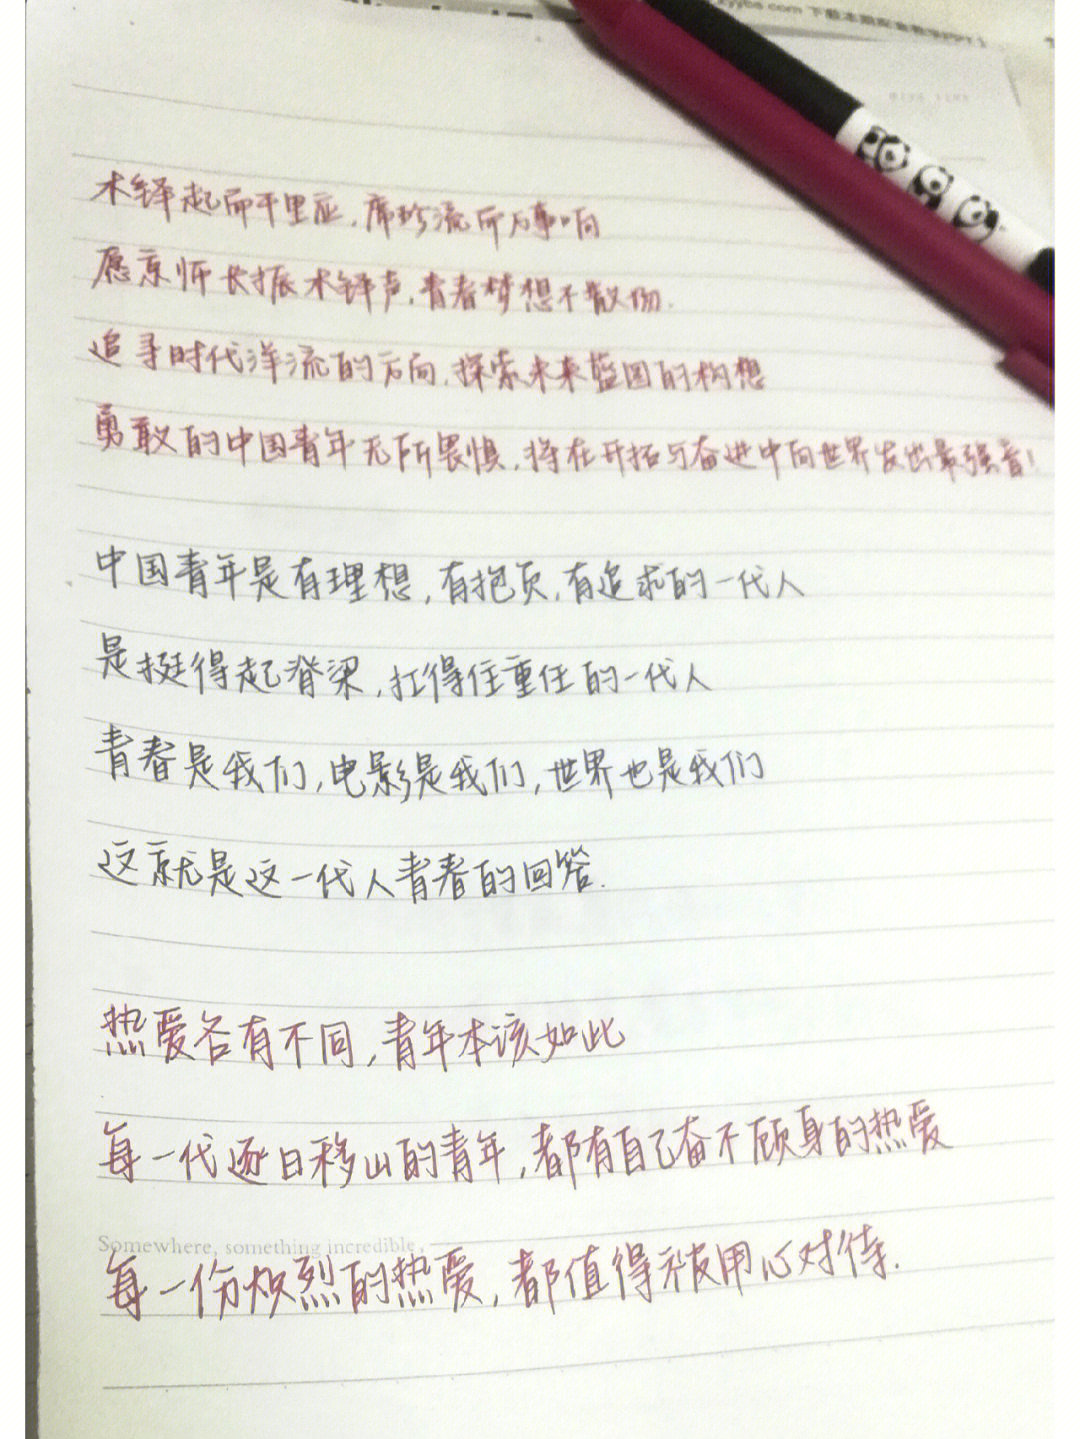 下载本期配套教学PPT
木铎起而千里应,席珍流所万事响
愿京师长振木铎声,青春梦想不散场.
追寻时代洋流的方向,探索未来蓝图的构想
勇敢的中国青年无所畏惧,将在开拓与奋进中向世界发出最强音!
中国青年是有理想,有抱负,有追求的一代人
是挺得起脊梁,扛得住重任的一代人
青春是我们,电影是我们,世界也是我们
这就是这一代人青春的回答.
热爱各有不同,青年本该如此
每一代逐日移山的青年,都有自己奋不顾身的热爱
Somewhere, something incredible,
每一份炽烈的热爱,都值得被用心对待.